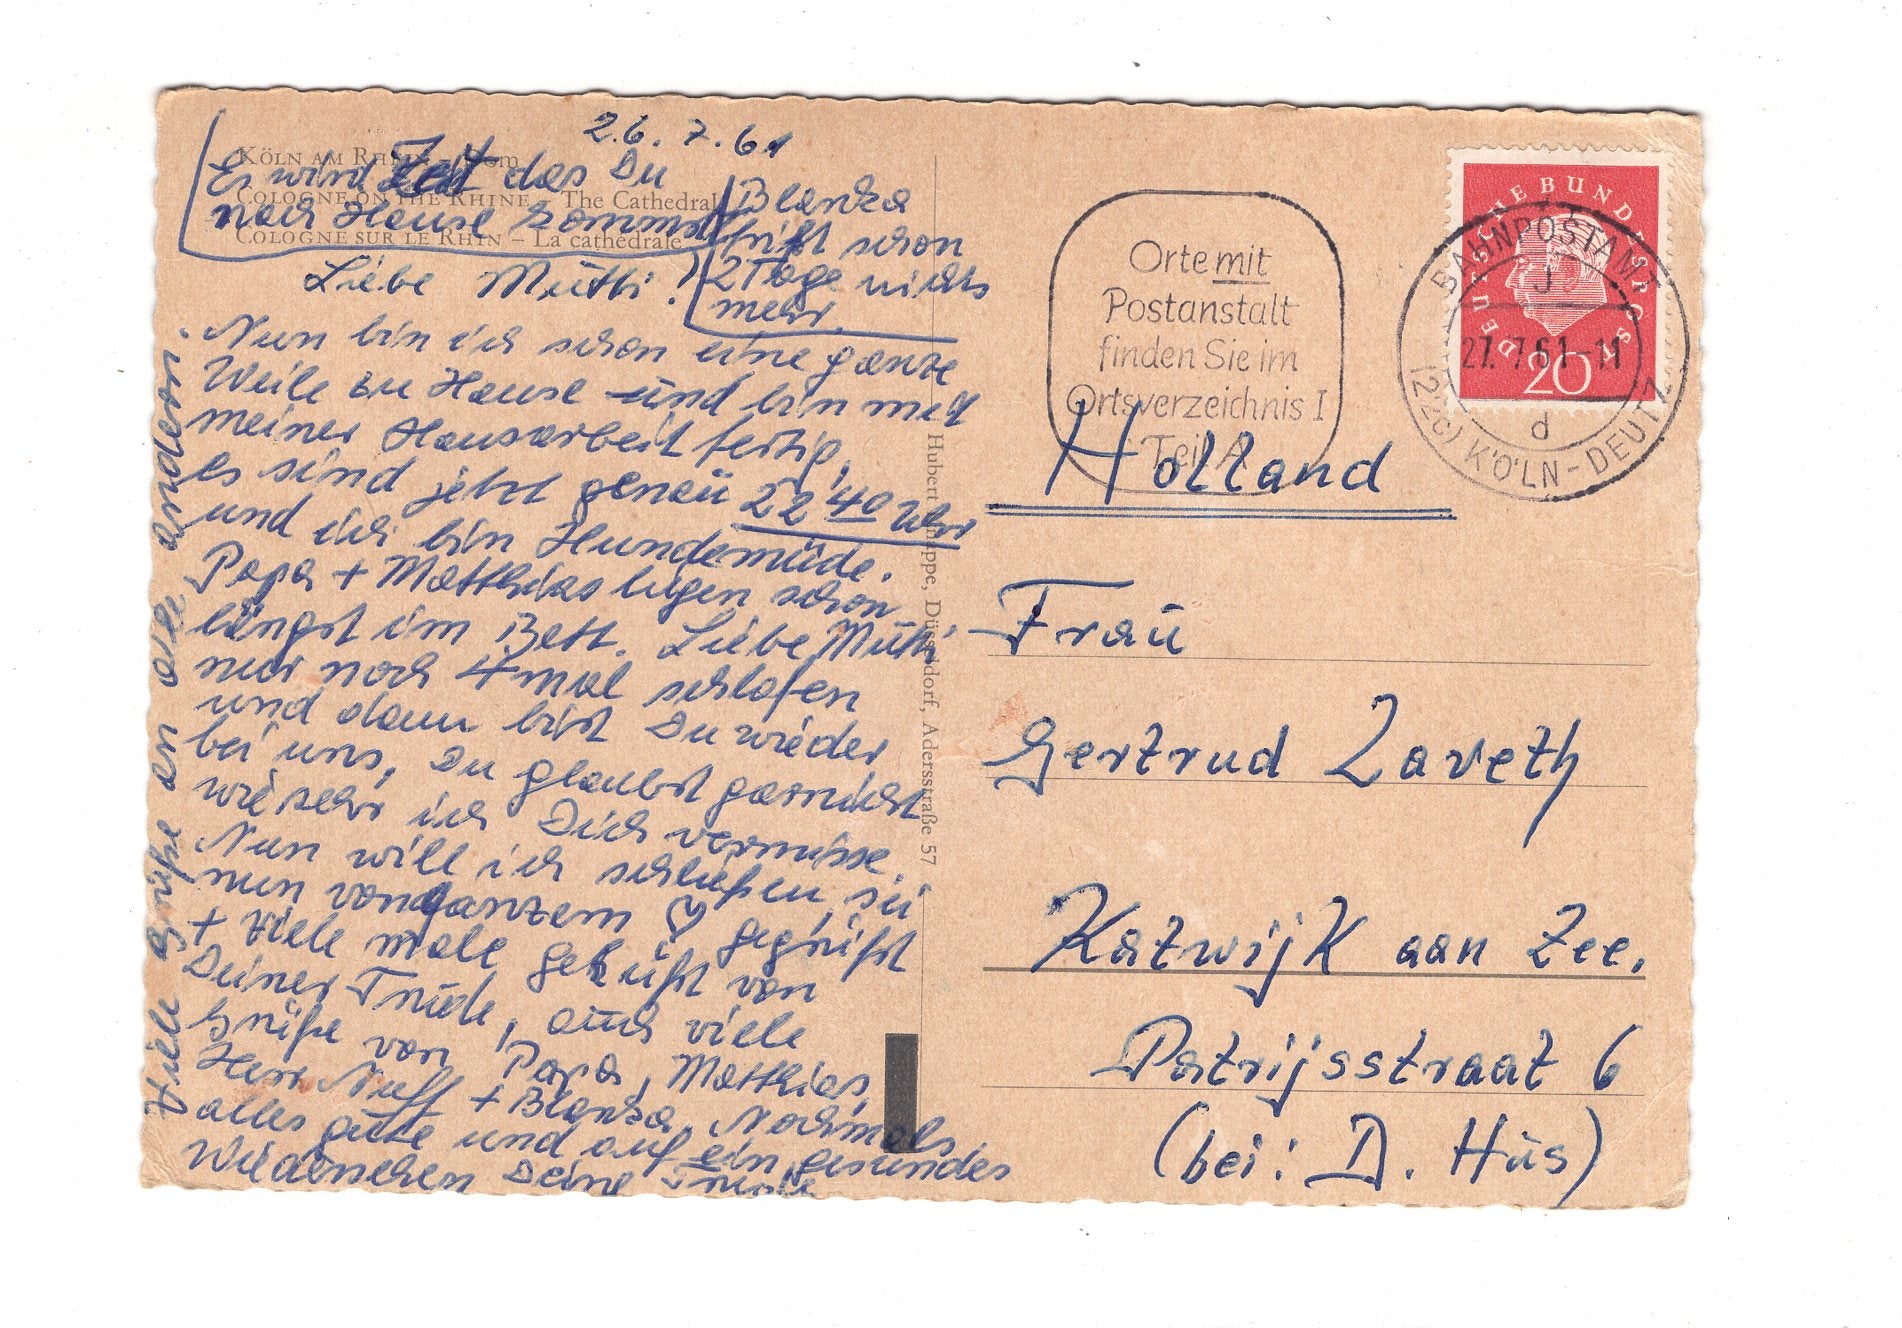 26. 7. 61
KÖLN AM RHEIN – Dom
COLOGNE ON THE RHINE – The Cathedral
COLOGNE SUR LE RHIN – La cathédrale
Es wird Zeit das Du
nach Hause kommst
Blanka
frißt schon
2 Tage nichts
mehr.
Liebe Mutti!
Nun bin ich schon eine ganze
Weile zu Hause und bin mit
meiner Hausarbeit fertig,
es sind jetzt genau 22 40 Uhr
und ich bin Hundemüde.
Papa + Matthias liegen schon
längst im Bett. Liebe Mutti
nur noch 4 mal schlafen
und dann bist Du wieder
bei uns, Du glaubst garnicht
wie sehr ich Dich vermisse.
Nun will ich schließen, sei
nun von ganzem ♡ gegrüßt
+ viele male geküßt von
Deiner Trude, auch viele
Grüße von Papa, Matthias,
Herr Neff + Blanka. Nochmals
alles gute und auf ein gesundes
Wiedersehen Deine Trude
Viele Grüße an die anderen.
Hubert Knappe, Düsseldorf, Adersstraße 57
Orte mit
Postanstalt
finden Sie im
Ortsverzeichnis I
Teil A
DEUTSCHE BUNDESPOST
20
BAHNPOSTAMT
J
27.7.61-11
d
(22c) KÖLN-DEUTZ
Holland
Frau
Gertrud Zaveth
Katwijk aan Zee.
Patrijsstraat 6
(bei: D. Hus)